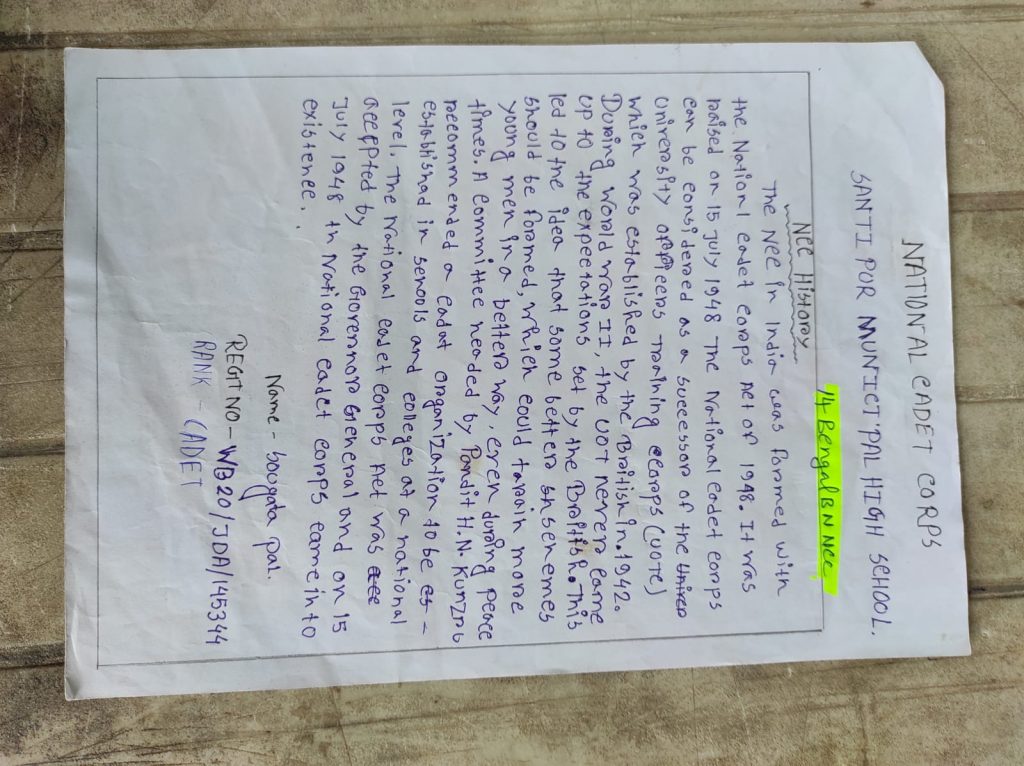 NATIONAL CADET CORPS
SANTIPOR MUNICIPAL HIGH SCHOOL.
14 Bengal BN NCC
NCC History
The NCC in India was formed with
the Nationl cadet corps Act of 1948. It was
raised on 15 July 1948 The National cadet corps
can be considered as a successor of the
University officers Training corps (UOTC)
which was established by the British in. 1942.
During world war II, the UOT never came
up to the expectations set by the British. This
led to the idea that some better sh schemes
should be formed, which could train more
young men in a better way, even during peace
times. A committee headed by Pandit H.N. Kunzru
recommended a cadat organization to be es-
established in schools and colleges at a national
level. The National cadet corps Act was
accepted by the Governor General and on 15
July 1948 th National cadet corps came into
existence.
Name - Sougata pal.
REGT NO - WB20/JDA/145344
RANK - CADET